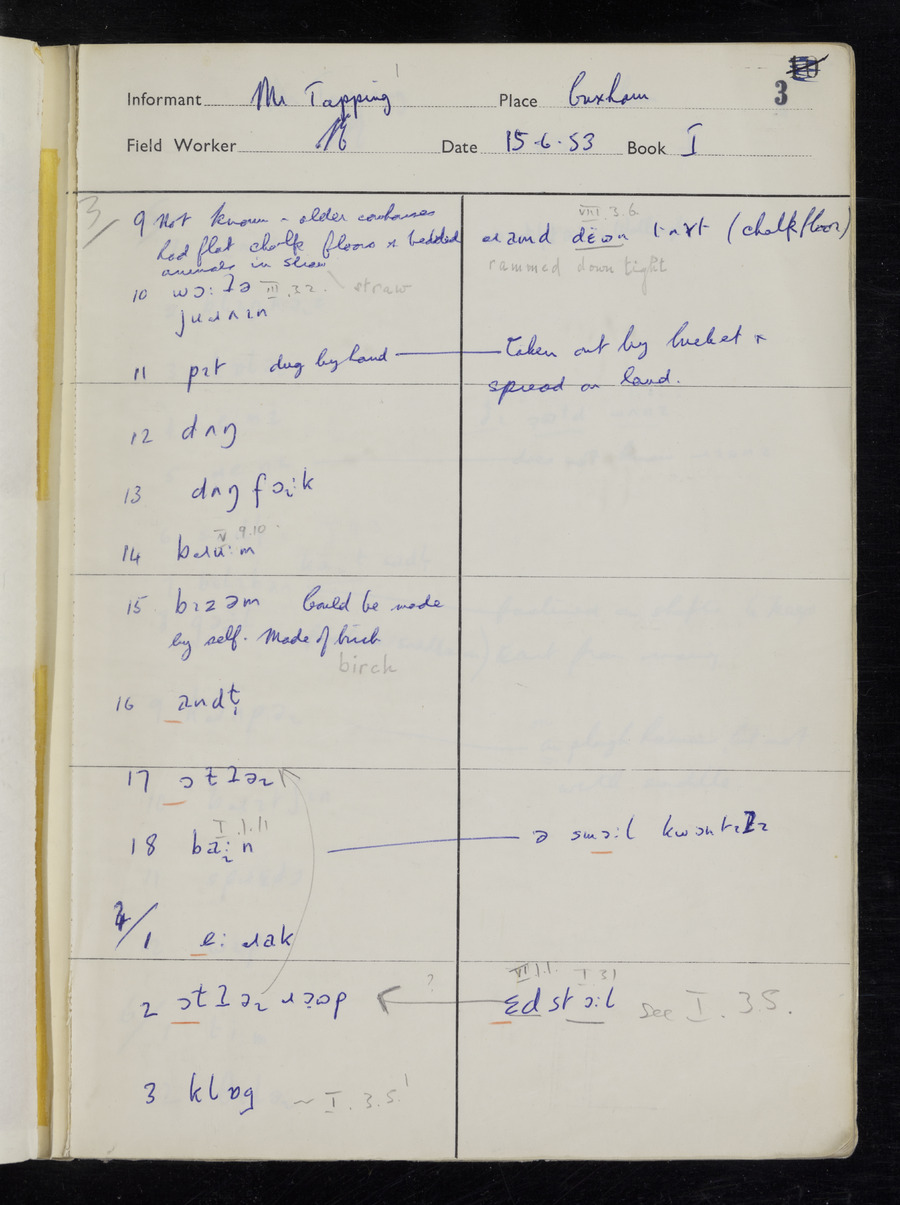 3
Informant Mr Tapping Place Cuxham
Field Worker Date 15·6·53 Book I
3/ 9 Not known - older cowhouses
had flat chalk floors & bedded
animals in straw
VIII.3.6.
ɹamd dɛ̈ʊn tʌɪt (chalk floor)
rammed down tight
10 wɔ:ɫə III.3.2. straw
juɹɪn
11 pɪt dug by hand
Taken out by bucket &
spread on land.
12 dʌŋ
13 dʌŋ fɔ:k
V.9.10.
14 bɹu:m
15 bɪzəm Could be made
by self. Made of birch
birch
16 andɫ̩
17 ɔɫtəɹ
I.1.11
18 ba:n
ə smɔ:l kwɒntɪɫɪ
4/1 e:ɹak
2 ɔɫtəɹ ɹɔʊp
?
VII.1. I.31
ɛdstɔ:l see I.3.5.
3 klɒg ~ I.3.5.